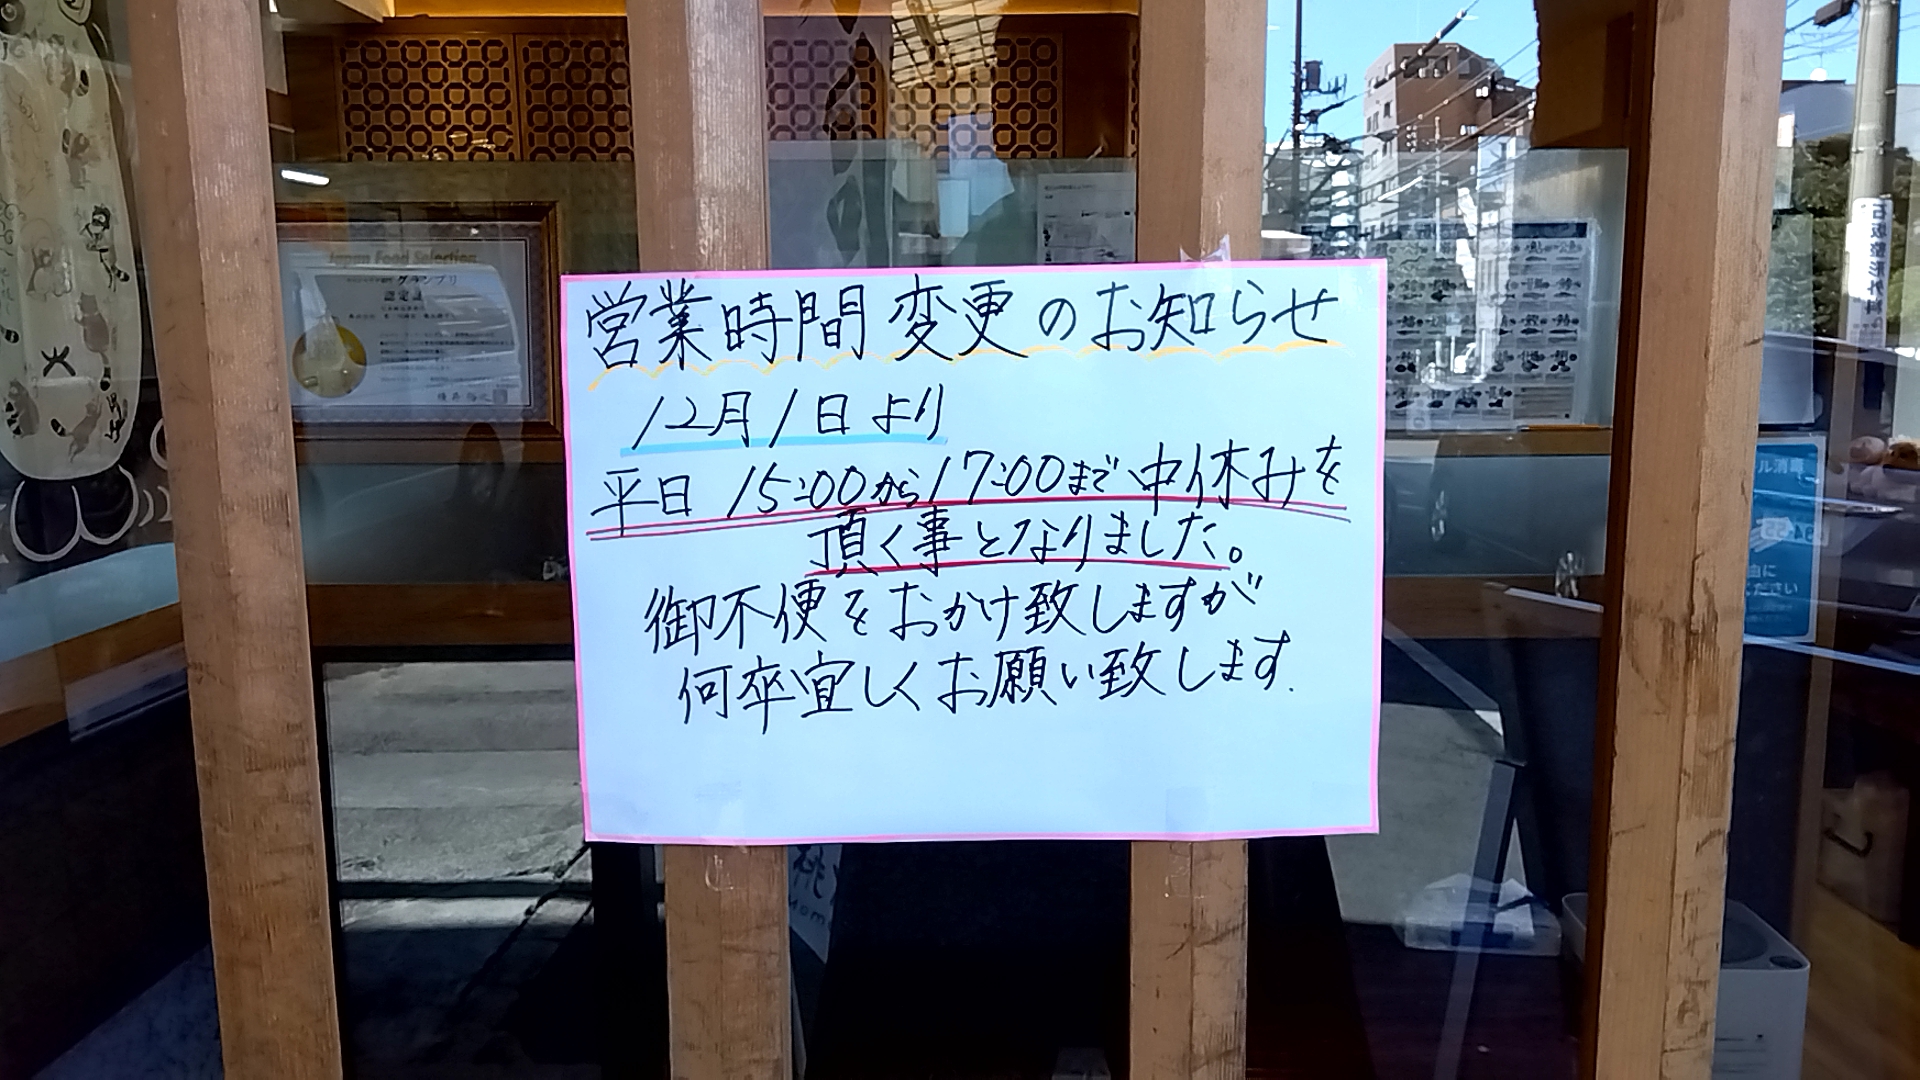 営業時間変更のお知らせ
12月1日より
平日 15:00から17:00まで中休みを
頂く事となりました。
御不便をおかけ致しますが
何卒宜しくお願い致します.
Japan Food Selection
グランプリ
認定証
石坂整形外科
ル消毒
由に
ください